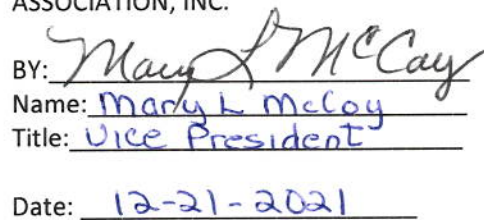 ASSOCIATION, INC.
BY: Mary L McCoy
Name: Mary L McCoy
Title: Vice President
Date: 12-21-2021